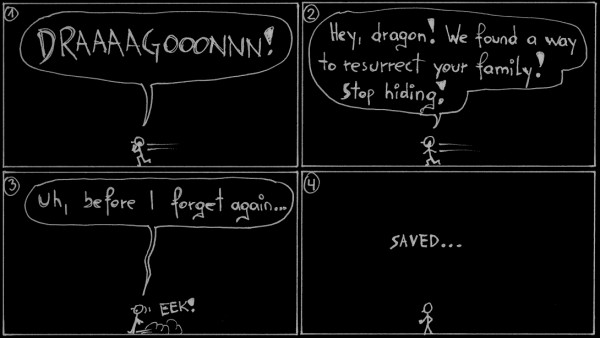 1
DRAAAAGOOONNN!
2
Hey, dragon! We found a way
to resurrect your family!
Stop hiding!
3
Uh, before I forget again...
EEK!
4
SAVED...